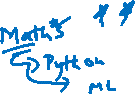 Maths
Python
ML